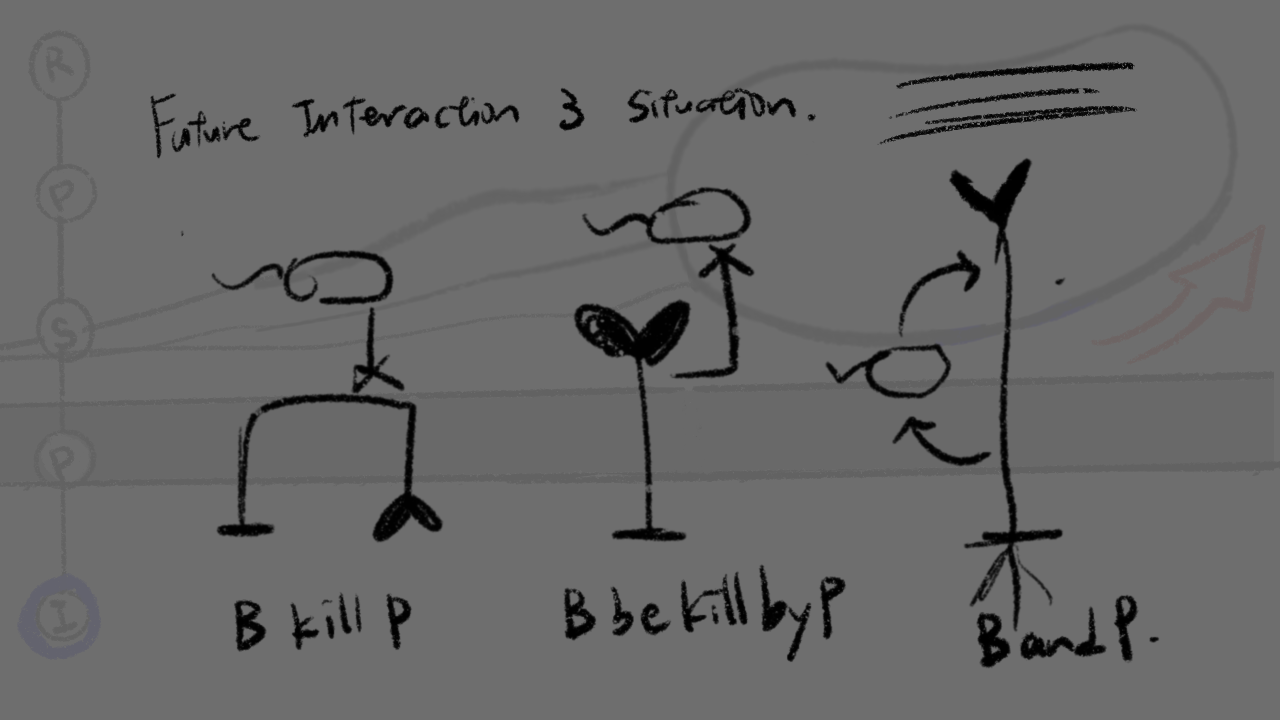 Future Interaction 3 Situation.
R
P
S
P
I
B kill P
B be kill by P
B and P.